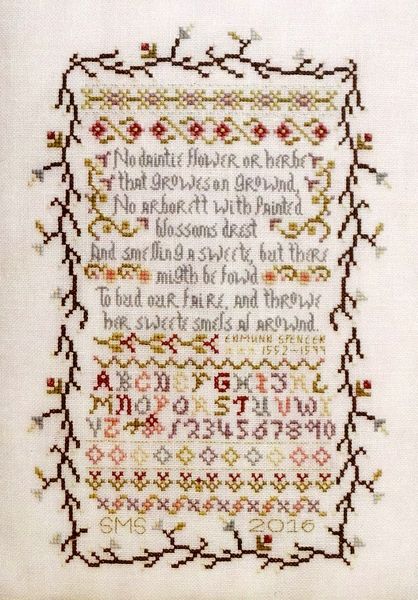 No daintie flower or herbe
that growes on grownd,
No arborett with painted
blossoms drest
And smelling sweete, but there
might be fownd
To bud out faire, and throwe
her sweete smels al arownd.
EDMUND SPENCER
1552-1599
ABCDEFGHIJKL
MNOPQRSTUVWX
YZ 1234567890
SMS 2016